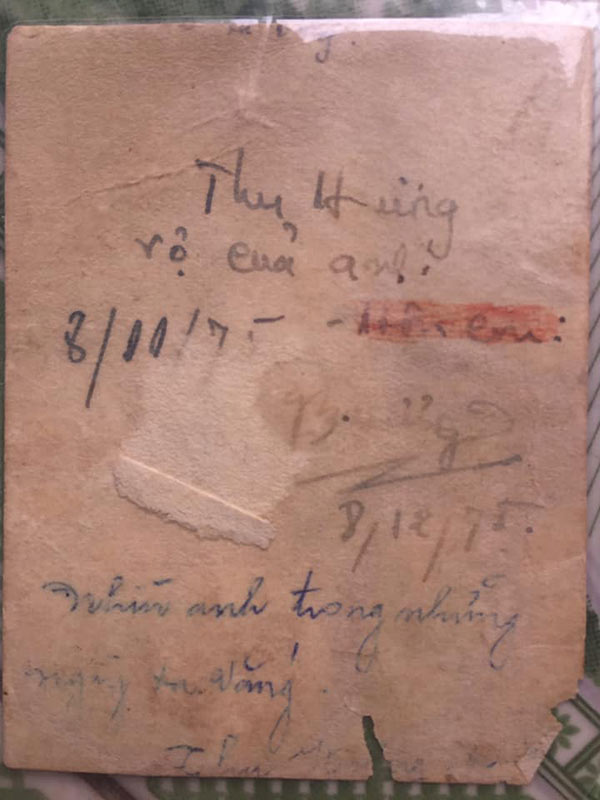 Thu Hùng
vợ của anh!
8/11/75 - Hôn em:
8/12/75.
Nhìn anh trong những
ngày xa vắng.
Thu